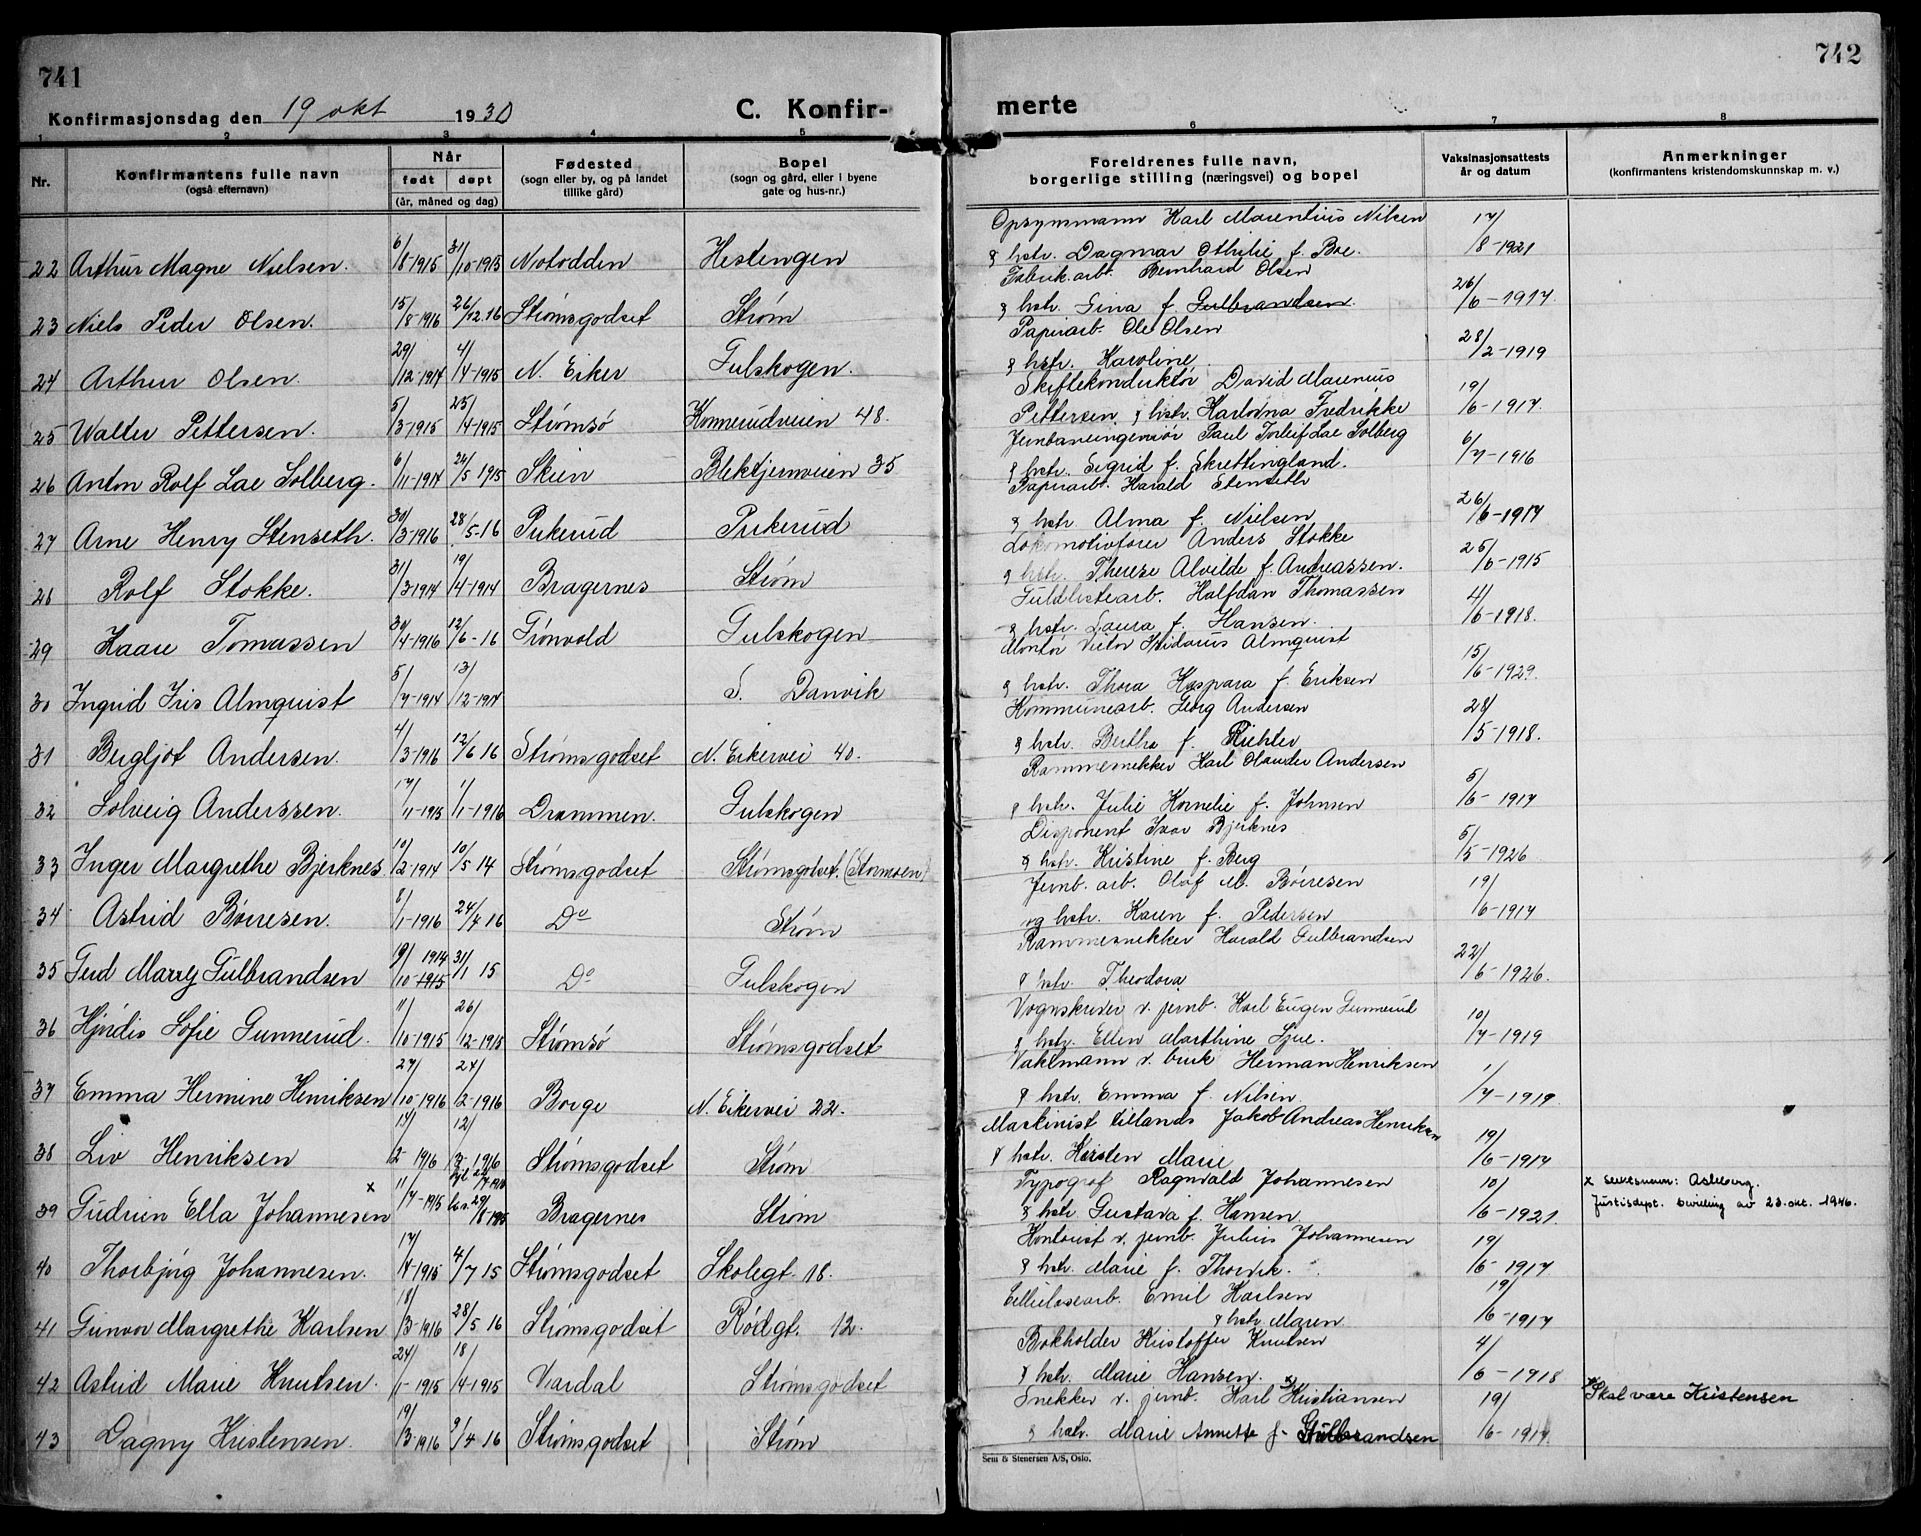 741
742
Konfirmasjonsdag den 19 okt 1930
C. Konfir-
merte
1 2 3 4 5 6 7 8
Nr.
Konfirmantens fulle navn
(også efternavn)
Når
født
døpt
(år, måned og dag)
Fødested
(sogn eller by, og på landet
tillike gård)
Bopel
(sogn og gård, eller i byene
gate og hus-nr.)
Foreldrenes fulle navn,
borgerlige stilling (næringsvei) og bopel
Vaksinasjonsattests
år og datum
Anmerkninger
(konfirmantens kristendomskunnskap m. v.)
Opsynsmann Karl Marentius Nilsen 17/
22 Arthur Magne Nielsen. 6/8-1915 31/10-1915 Notodden Hestengen & hstr. Dagmar Othilie f. Boe. 8-1921
Fabrik.arb. Bernhard Olsen
23 Niels Peder Olsen. 15/8-1916 26/12.16 Strømsgodset Strøm & hstr. Lina f. Gulbrandsen. 26/6-1917.
Papirarb. Ole Olsen
24 Arthur Olsen. 29/12-1914 4/4-1915 N. Eiker Gulskogen. & hstr. Karoline. 28/2-1919
Skiftekonduktør David Marenius
25 Walter Pettersen. 5/3-1915 25/4-1915 Strømsø Konnerudveien 48. Pettersen, & hstr. Karlovna Fredrikke 19/6-1917.
Jernbaneingeniør Paul Torleif Lae Solberg
26 Anton Rolf Lae Solberg. 6/11-1914 24/5 1915 Skien Blektjernveien 35 & hstr. Sigrid f. Skrettingland. 6/7-1916
Papirarb. Harald Stenseth
27 Arne Henry Stenseth. 30/3-1916 28/5-16 Pukerud Pukerud & hstr Alma f. Nielsen 26/6-1917
Lokomotivfører Anders Stokke
28 Rolf Stokke. 31/3-1914 19/4-1914 Bragernes Strøm & hstr. Therese Alvilde f. Andreassen. 25/6-1915
Guldlistearb. Halfdan Thomassen
29 Kaare Tomassen 30/4-1916 12/6-16 Grønvold Gulskogen & hstr. Laura f. Hansen. 4/6-1918.
Montør Victor Isidorius Almquist
30 Ingrid Iris Almquist 5/7-1914 13/12-1914 S. Danvik & hstr. Thora Kaspara f. Eriksen 15/6-1929.
Kommunearb. Georg Andersen
31 Bergljot Andersen. 4/3-1916 12/6 16 Strømsgodset N. Eikervei 40. & hstr. Bertha f. Richter 28/5-1918.
Rammesnekker Karl Olander Andersen
32 Solveig Anderssen. 17/11-1915 1/1-1916 Drammen. Gulskogen & hstr. Julie Kornelie f. Johnsen 5/6-1917
Disponent Ivar Bjerknes
33 Inger Margrethe Bjerknes 10/2-1914 10/5 14 Strømsgodset Strømsgodset. (Stormoen) & hstr. Kristine f. Berg 5/5-1926
Jernb. arb. Olaf M. Børresen
34 Astrid Børresen. 8/1-1916 24/4 16 Do Strøm og hstr. Karen f. Pedersen 19/6-1917
Rammesnekker Harald Gulbrandsen
35 Gerd Marry Gulbrandsen 9/10-1915 1914 31/1 15 Do Gulskogen & hstr. Theodora 22/6-1926.
Vognskriver v. jernb. Karl Eugen Gunnerud
36 Hjørdis Sofie Gunnerud. 11/10-1915 26/12-1915 Strømsø Strømsgodset & hstr. Ellen Marthine Ljue. 10/7-1919
Vaktmann v. bruk Herman Henriksen
37 Emma Hermine Henriksen 27/10-1916 24/2-1916 Borge N. Eikervei 22. & hstr. Emma f. Nilsen. 1/7-1919.
Maskinist tillands Jakob Andreas Henriksen
38 Liv Henriksen 13/2-1916 12/3-1916 Strømsgodset Strøm & hstr. Kirsten Marie 19/6-1917
Typograf Ragnvald Johannesen
39 Gudrun Ella Johannesen x 11/7-1915 Bragernes Strøm & hstr Gustava f. Hansen. 10/6-1921. x slektsnavn: Askeberg.
Justisdept. bevilling av 23. okt. 1946.
Kontorist v. jernb. Julius Johannesen
40 Thorbjørg Johannesen. 17/4-1915 4/7 15 Strømsgodset Skolegt. 18. & hstr. Marie f. Thorvik. 19/6-1917
Cellulosearb. Emil Karlsen
41 Gunvor Margrethe Karlsen 18/3-1916 28/5 16 Strømsgodset Rødgt. 12. & hstr. Maren. 19/6-1917
Bokholder Kristoffer Knutsen
42 Astrid Marie Knutsen. 24/1-1915 18/4-1915 Vardal Strømsgodset & hstr. Marie Hansen. 4/6-1918
Snekker v. jernb. Karl x Kristiansen x Skal være Kristensen
43 Dagny Kristensen. 19/3-1916 9/4 16 Strømsgodset Strøm & hstr. Marie Annette f. Gulbrandsen 19/6-1917.
Sem & Stenersen A/S, Oslo.